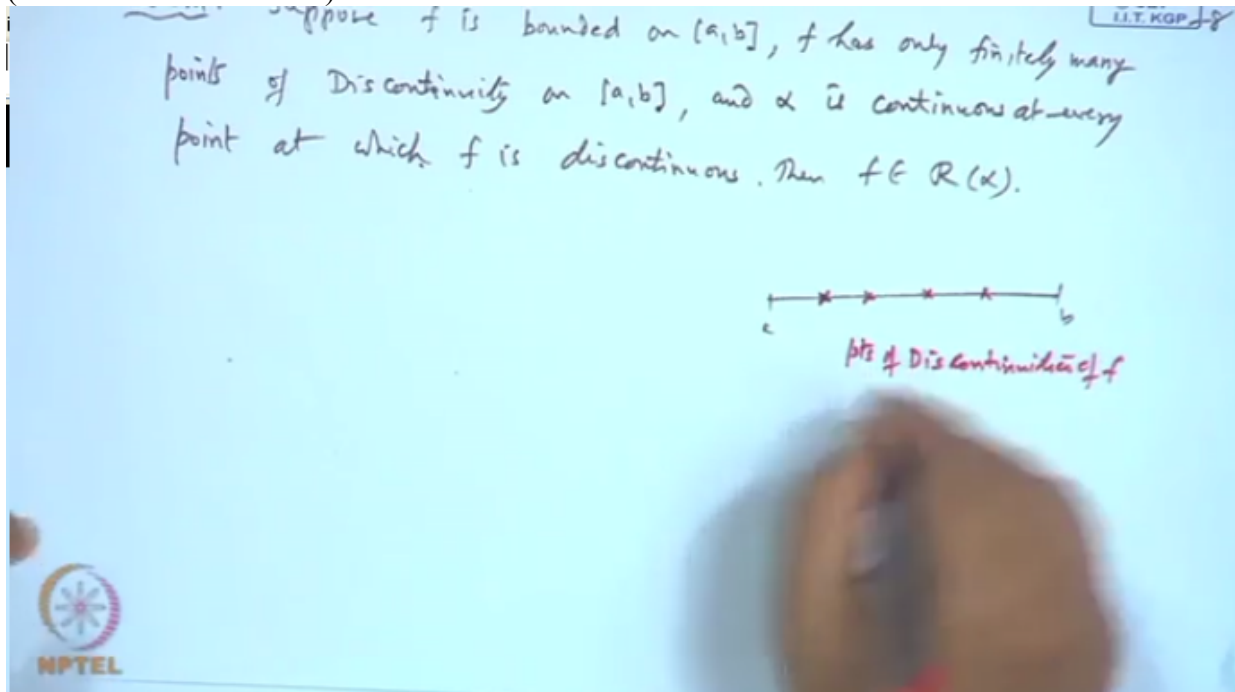 Suppose f is bounded on [a,b], f has only finitely many
I.I.T. KGP
points of Discontinuity on [a,b], and α is continuous at every
point at which f is discontinuous. Then f ∈ R(α).
b
pts of Discontinuities of f
NPTEL